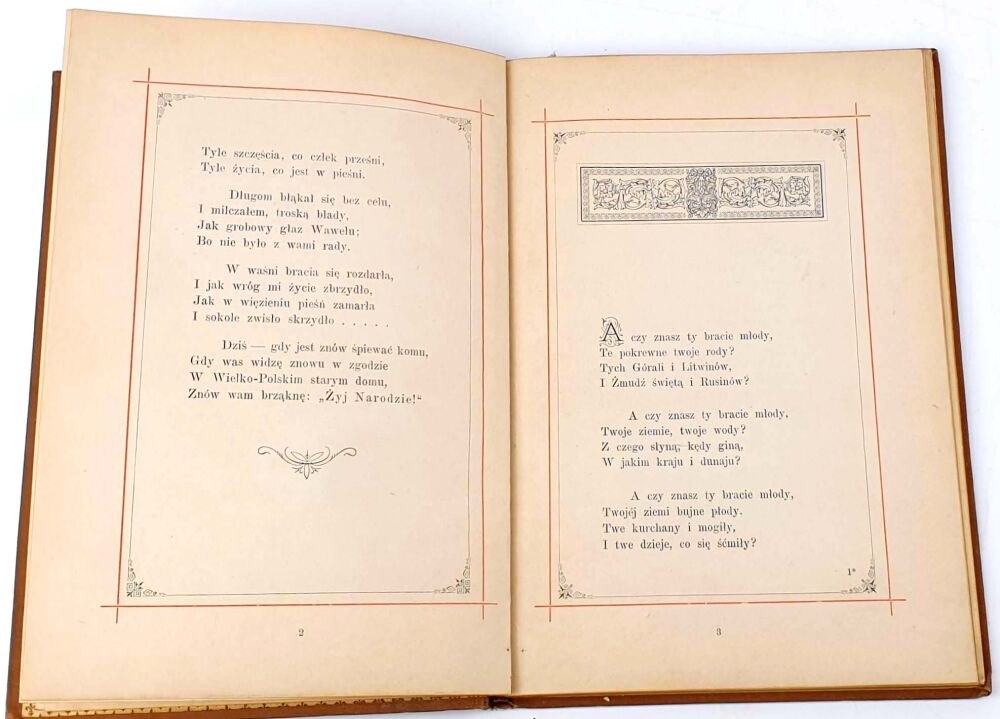 Tyle szczęścia, co człek prześni,
Tyle życia, co jest w pieśni.
Długom błąkał się bez celu,
I milczałem, troską blady,
Jak grobowy głaz Wawelu;
Bo nie było z wami rady.
W waśni bracia się rozdarła,
I jak wróg mi życie zbrzydło,
Jak w więzieniu pieśń zamarła
I sokole zwisło skrzydło . . . . .
Dziś — gdy jest znów śpiewać komu,
Gdy was widzę znowu w zgodzie
W Wielko-Polskim starym domu,
Znów wam brząknę: „Żyj Narodzie!“
2
A czy znasz ty bracie młody,
Te pokrewne twoje rody?
Tych Górali i Litwinów,
I Żmudź świętą i Rusinów?
A czy znasz ty bracie młody,
Twoje ziemie, twoje wody?
Z czego słyną, kędy giną,
W jakim kraju i dunaju?
A czy znasz ty bracie młody,
Twojéj ziemi bujne płody.
Twe kurchany i mogiły,
I twe dzieje, co się śćmiły?
1*
3